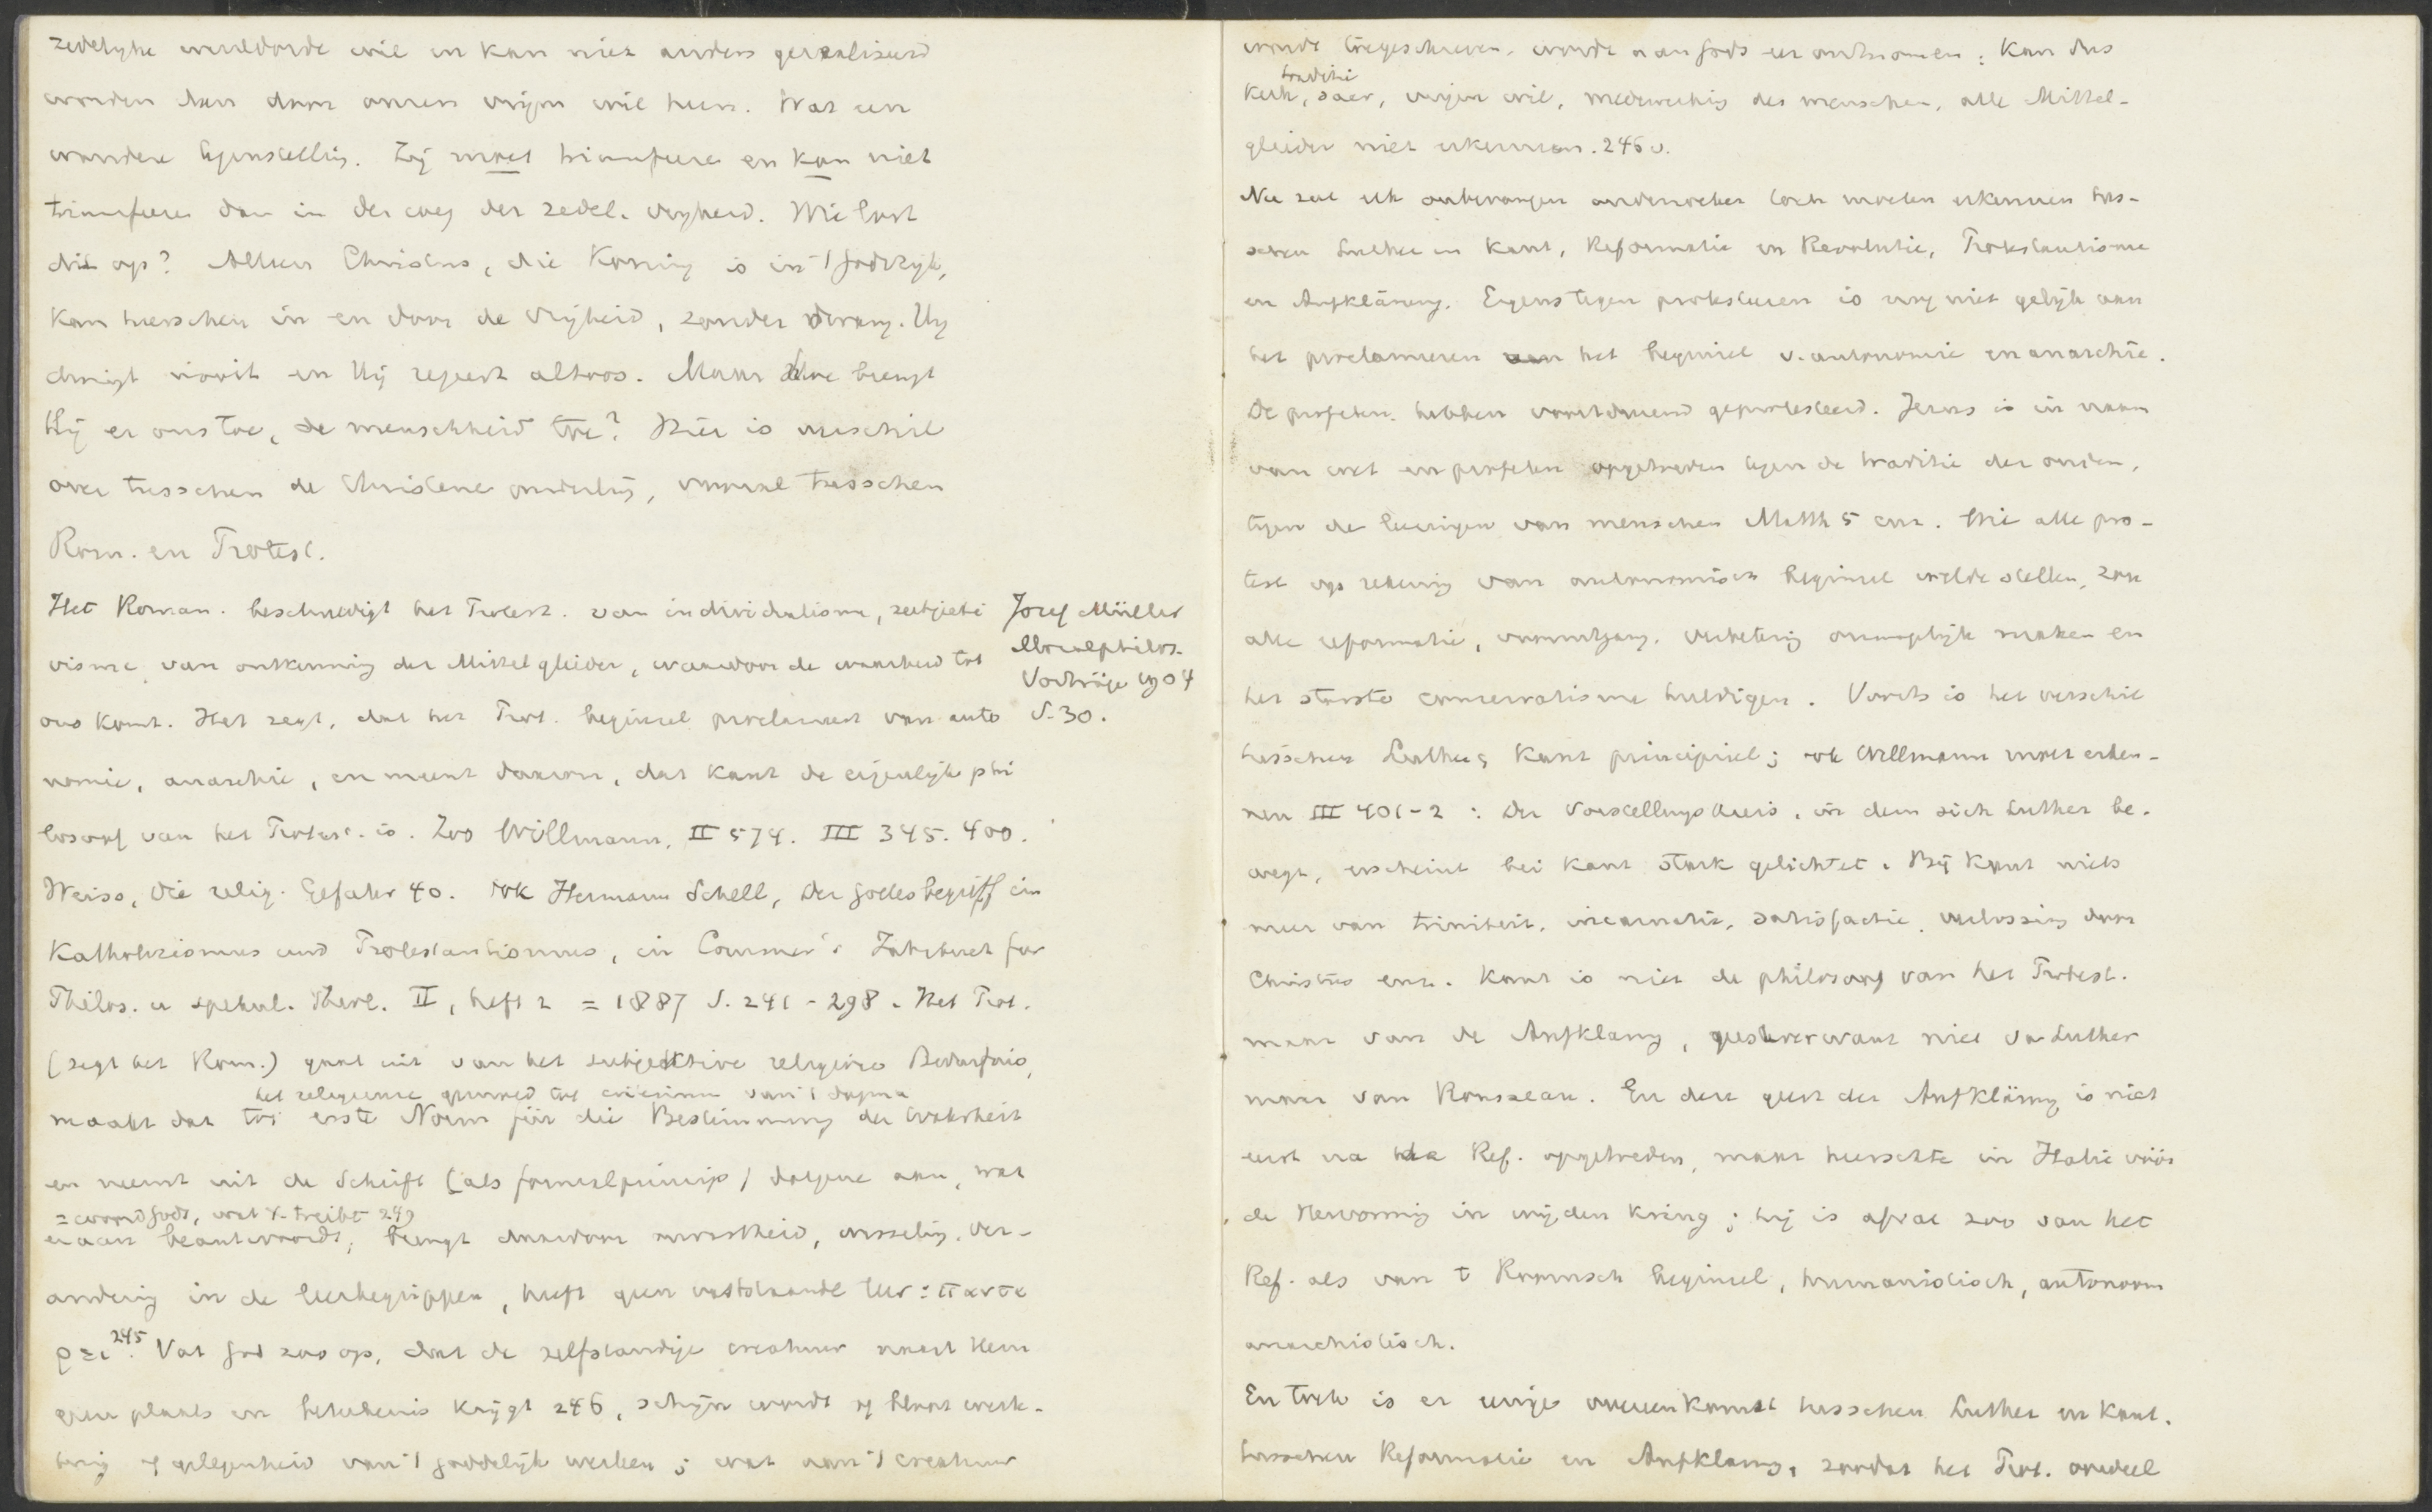 zedelijke wereldorde wil en kan niet anders gerealiseerd
worden dan door onzen vrijen wil heen. Wat een
wondere tegenstelling. Zij moet triumfeere en kan niet
triumfeere dan in den weg der zedel. vrijheid. Wie lost
dit op? Alleen Christus, die Koning is in 't godsrijk,
kan heerschen in en door de vrijheid, zonder dwang. Hij
dwingt nooit en Hij regeert altoos. Maar hoe brengt
Hij er ons toe, de menschheid toe? Hier is verschil
over tusschen de Christene onderling, vooral tusschen
Rom. en Protest.
Het Roman. beschuldigt het Protest. van individualisme, subjecti
visme, van ontkenning der Mittelglieder, waardoor de waarheid tot
ons komt. Het zegt, dat het Prot. beginsel proclameert van auto
nomie, anarchie, en meent daarom, dat Kant de eigenlijke phi
losoof van het Protest. is. Zoo Willmann, II 574. III 345. 400.
Josef Müller
Moralphilos.
Vorträge 1904
S. 30.
Weiss, Die relig. Gefahr 40. ook Hermann Schell, Der Gottesbegriff im
Katholizismus und Protestantismus, in Commer's Jahrbuch für
Philos. u spekul. Theol. II, heft 2 = 1887 S. 241-298. Het Prot.
(zegt het Rom.) gaat uit van het subjektive religiöse Bedürfnis,
het religieuse gemoed tot criterium van 't dogma
maakt dat tot erste Norm für die Bestimmung der Wahrheit
en neemt uit de Schrift (als formalprincip) datgene aan, wat
= woord Gods, wat X. treibt 249
eraan beantwoordt, brengt daardoor onvastheid, wisseling, ver-
andering in de leerbegrippen, heeft geen vaststaande leer: παντα
ρει 245. Vat God zoo op, dat de zelfstandige creatuur naast Hem
geen plaats en beteekenis krijgt 246, schijn wordt of bloot werk-
tuig of gelegenheid van 't goddelijk werken; wat aan 't creatuur
wordt toegeschreven, wordt aan Gods eer ontnomen; kan dus
traditie
Kerk, sacr, vrijen wil, medewerking des menschen, alle Mittel-
glieder niet erkennen. 246 v.
Nu zal elk onbevangen onderzoeker toch moeten erkennen tus-
schen Luther en Kant, Reformatie en Revolutie, Protestantisme
en Aufklärung. Ergens tegen protesteren is nog niet gelijk aan
het proclameren van het beginsel v. autonomie en anarchie.
De profeten hebben voortdurend geprotesteerd. Jezus is in naam
van wet en profeten opgetreden tegen de traditie der ouden,
tegen de leeringen van menschen Matth 5 enz. Wie alle pro-
test op rekening van autonomisch beginsel wilde stellen, zou
alle reformatie, vooruitgang, verbetering onmogelijk maken en
het starste conservatisme huldigen. Voorts is het verschil
tusschen Luther & Kant principieel; ook Willmann moet erken-
nen III 401-2: Der Vorstellungskreis, in dem sich Luther be-
wegt, erscheint bei Kant stark gelichtet. Bij Kant niets
meer van triniteit, incarnatie, satisfactie, verlossing door
Christus enz. Kant is niet de philosoof van het Protest.
maar van de Aufklarung, geestverwant niet van Luther
maar van Rousseau. En deze geest der Aufklärung is niet
eerst na de Ref. opgetreden, maar heerschte in Italie vóór
de Hervorming in wijden kring; hij is afval zoo van het
Ref. als van 't Roomsch beginsel, humanistisch, autonoom
anarchistisch.
En toch is er eenige overeenkomst tusschen Luther en Kant,
tusschen Reformatie en Aufklarung, zoodat het Prot. oordeel